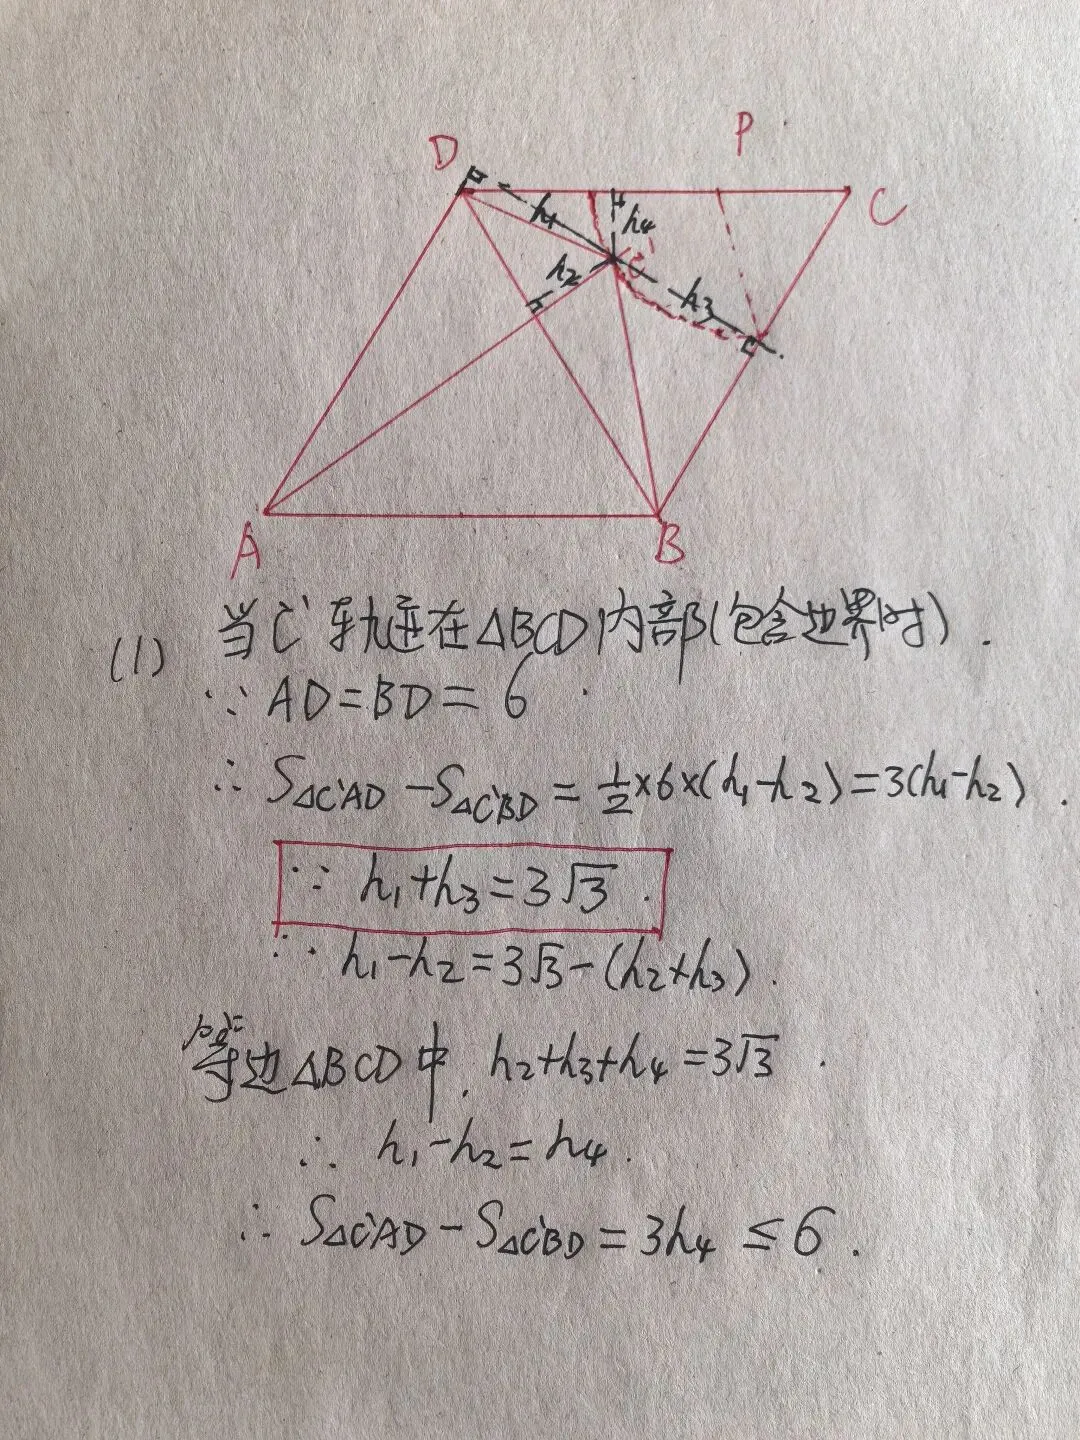 D
P
C
h₁
h₄
h₂
C'
h₃
A
B
(1) 当C'轨迹在△BCD内部(包含边界时).
∵ AD=BD=6
∴ S△C'AD -S△C'BD = 1/2×6×(h₁-h₂)=3(h₁-h₂).
∵ h₁+h₃=3√3.
∵ h₁-h₂=3√3-(h₂+h₃).
等边△BCD中, h₂+h₃+h₄=3√3.
∴ h₁-h₂=h₄.
∴ S△C'AD - S△C'BD = 3h₄ ≤6.